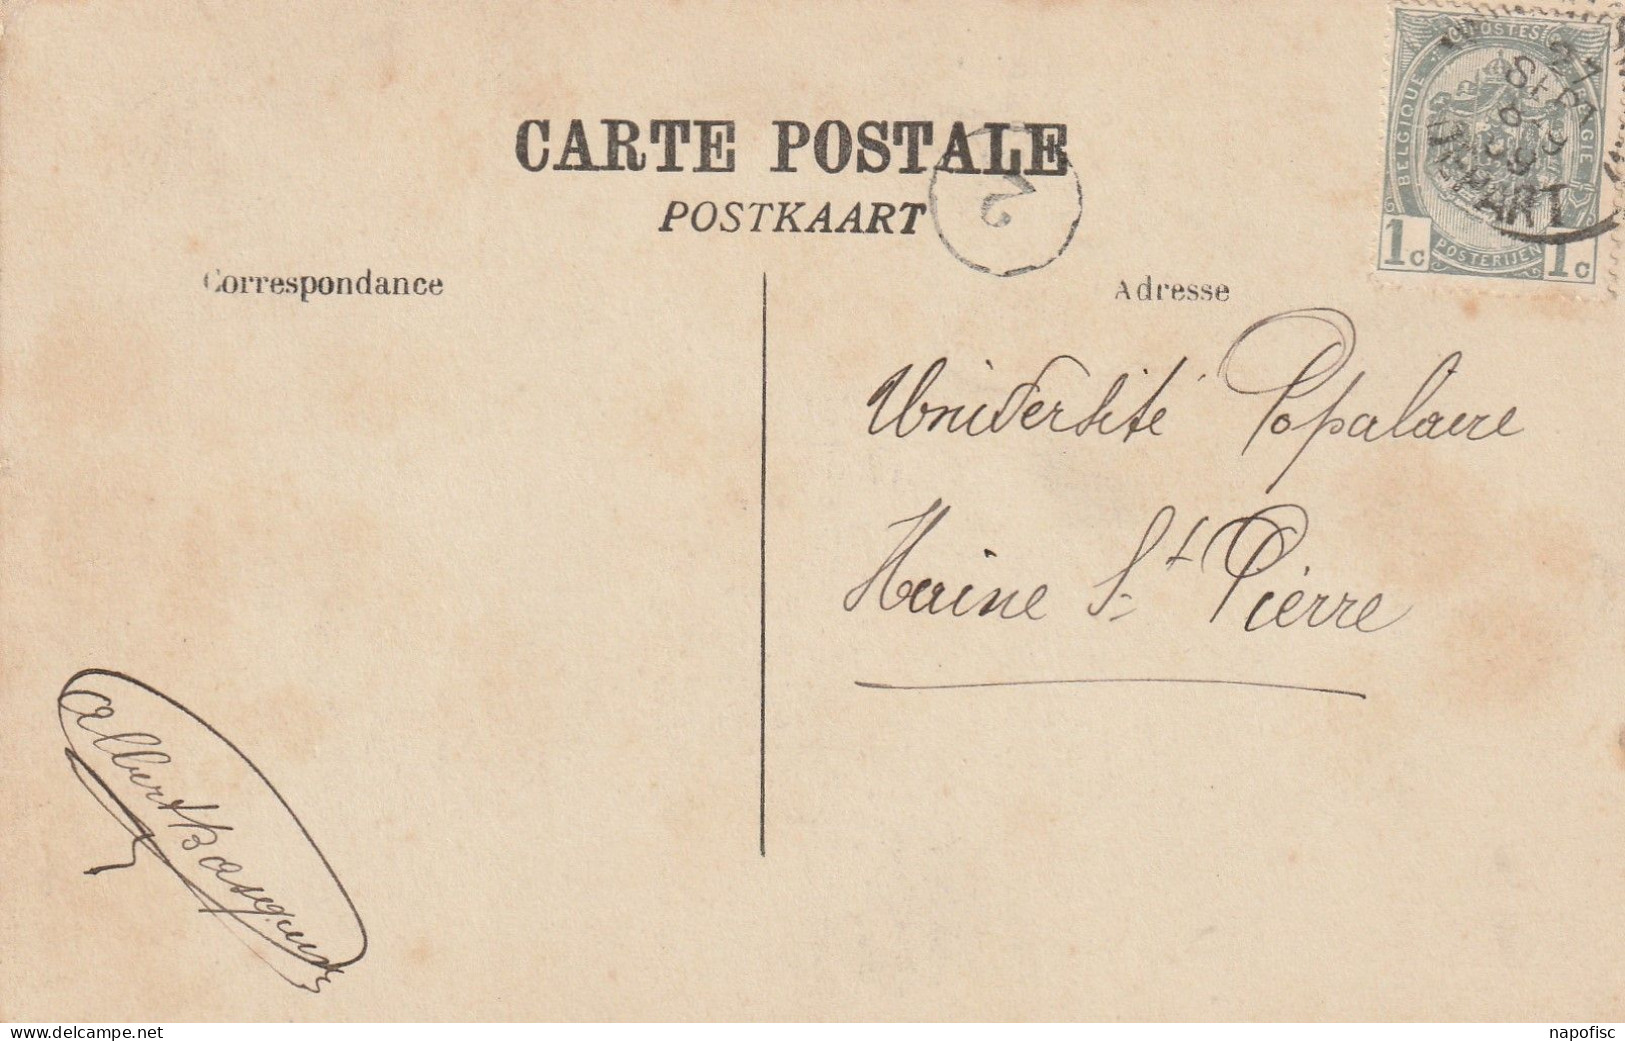 CARTE POSTALE
POSTKAART
2
Correspondance
Adresse
POSTES
BELGIQUE
BELGIË
POSTERIJEN
1c 1c
DEPART
Université Popalaire
Haine St Pierre
Albert
delcampe.net
napofisc